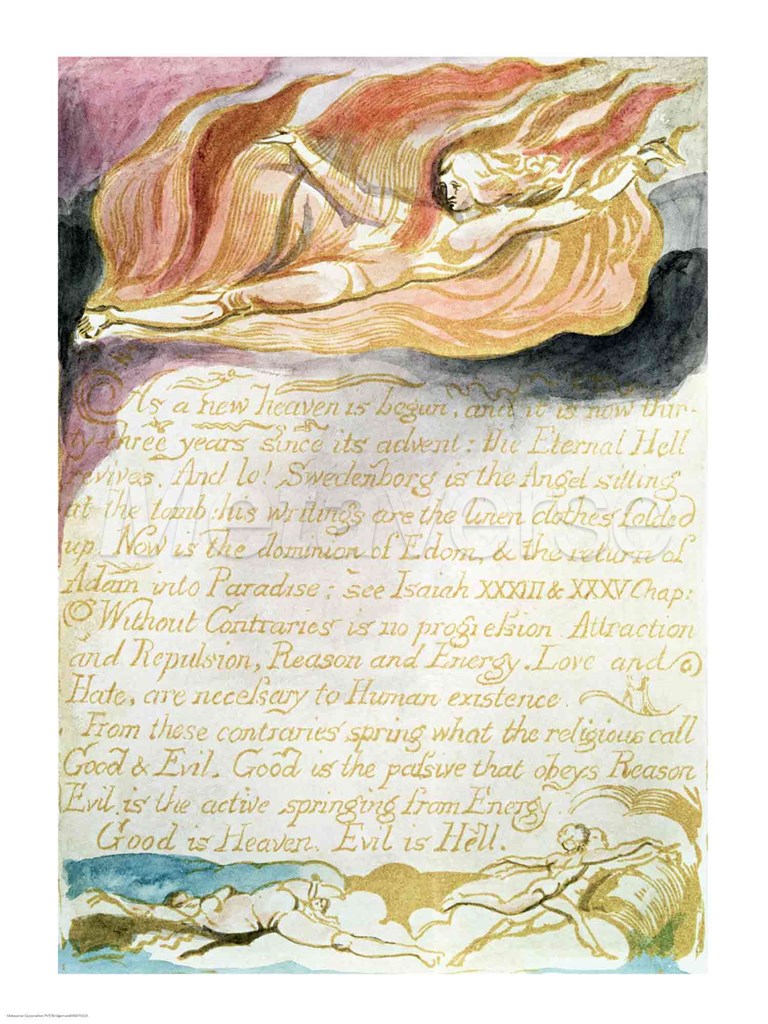 As a new heaven is begun, and it is now thir-
ty-three years since its advent: the Eternal Hell
revives. And lo! Swedenborg is the Angel sitting
at the tomb: his writings are the linen clothes folded
up. Now is the dominion of Edom, & the return of
Adam into Paradise; see Isaiah XXXIII & XXXV Chap:
Without Contraries is no progreſsion. Attraction
and Repulsion, Reason and Energy, Love and
Hate, are neceſsary to Human existence.
From these contraries spring what the religious call
Good & Evil. Good is the paſsive that obeys Reason
Evil is the active springing from Energy.
Good is Heaven. Evil is Hell.
Metaverse